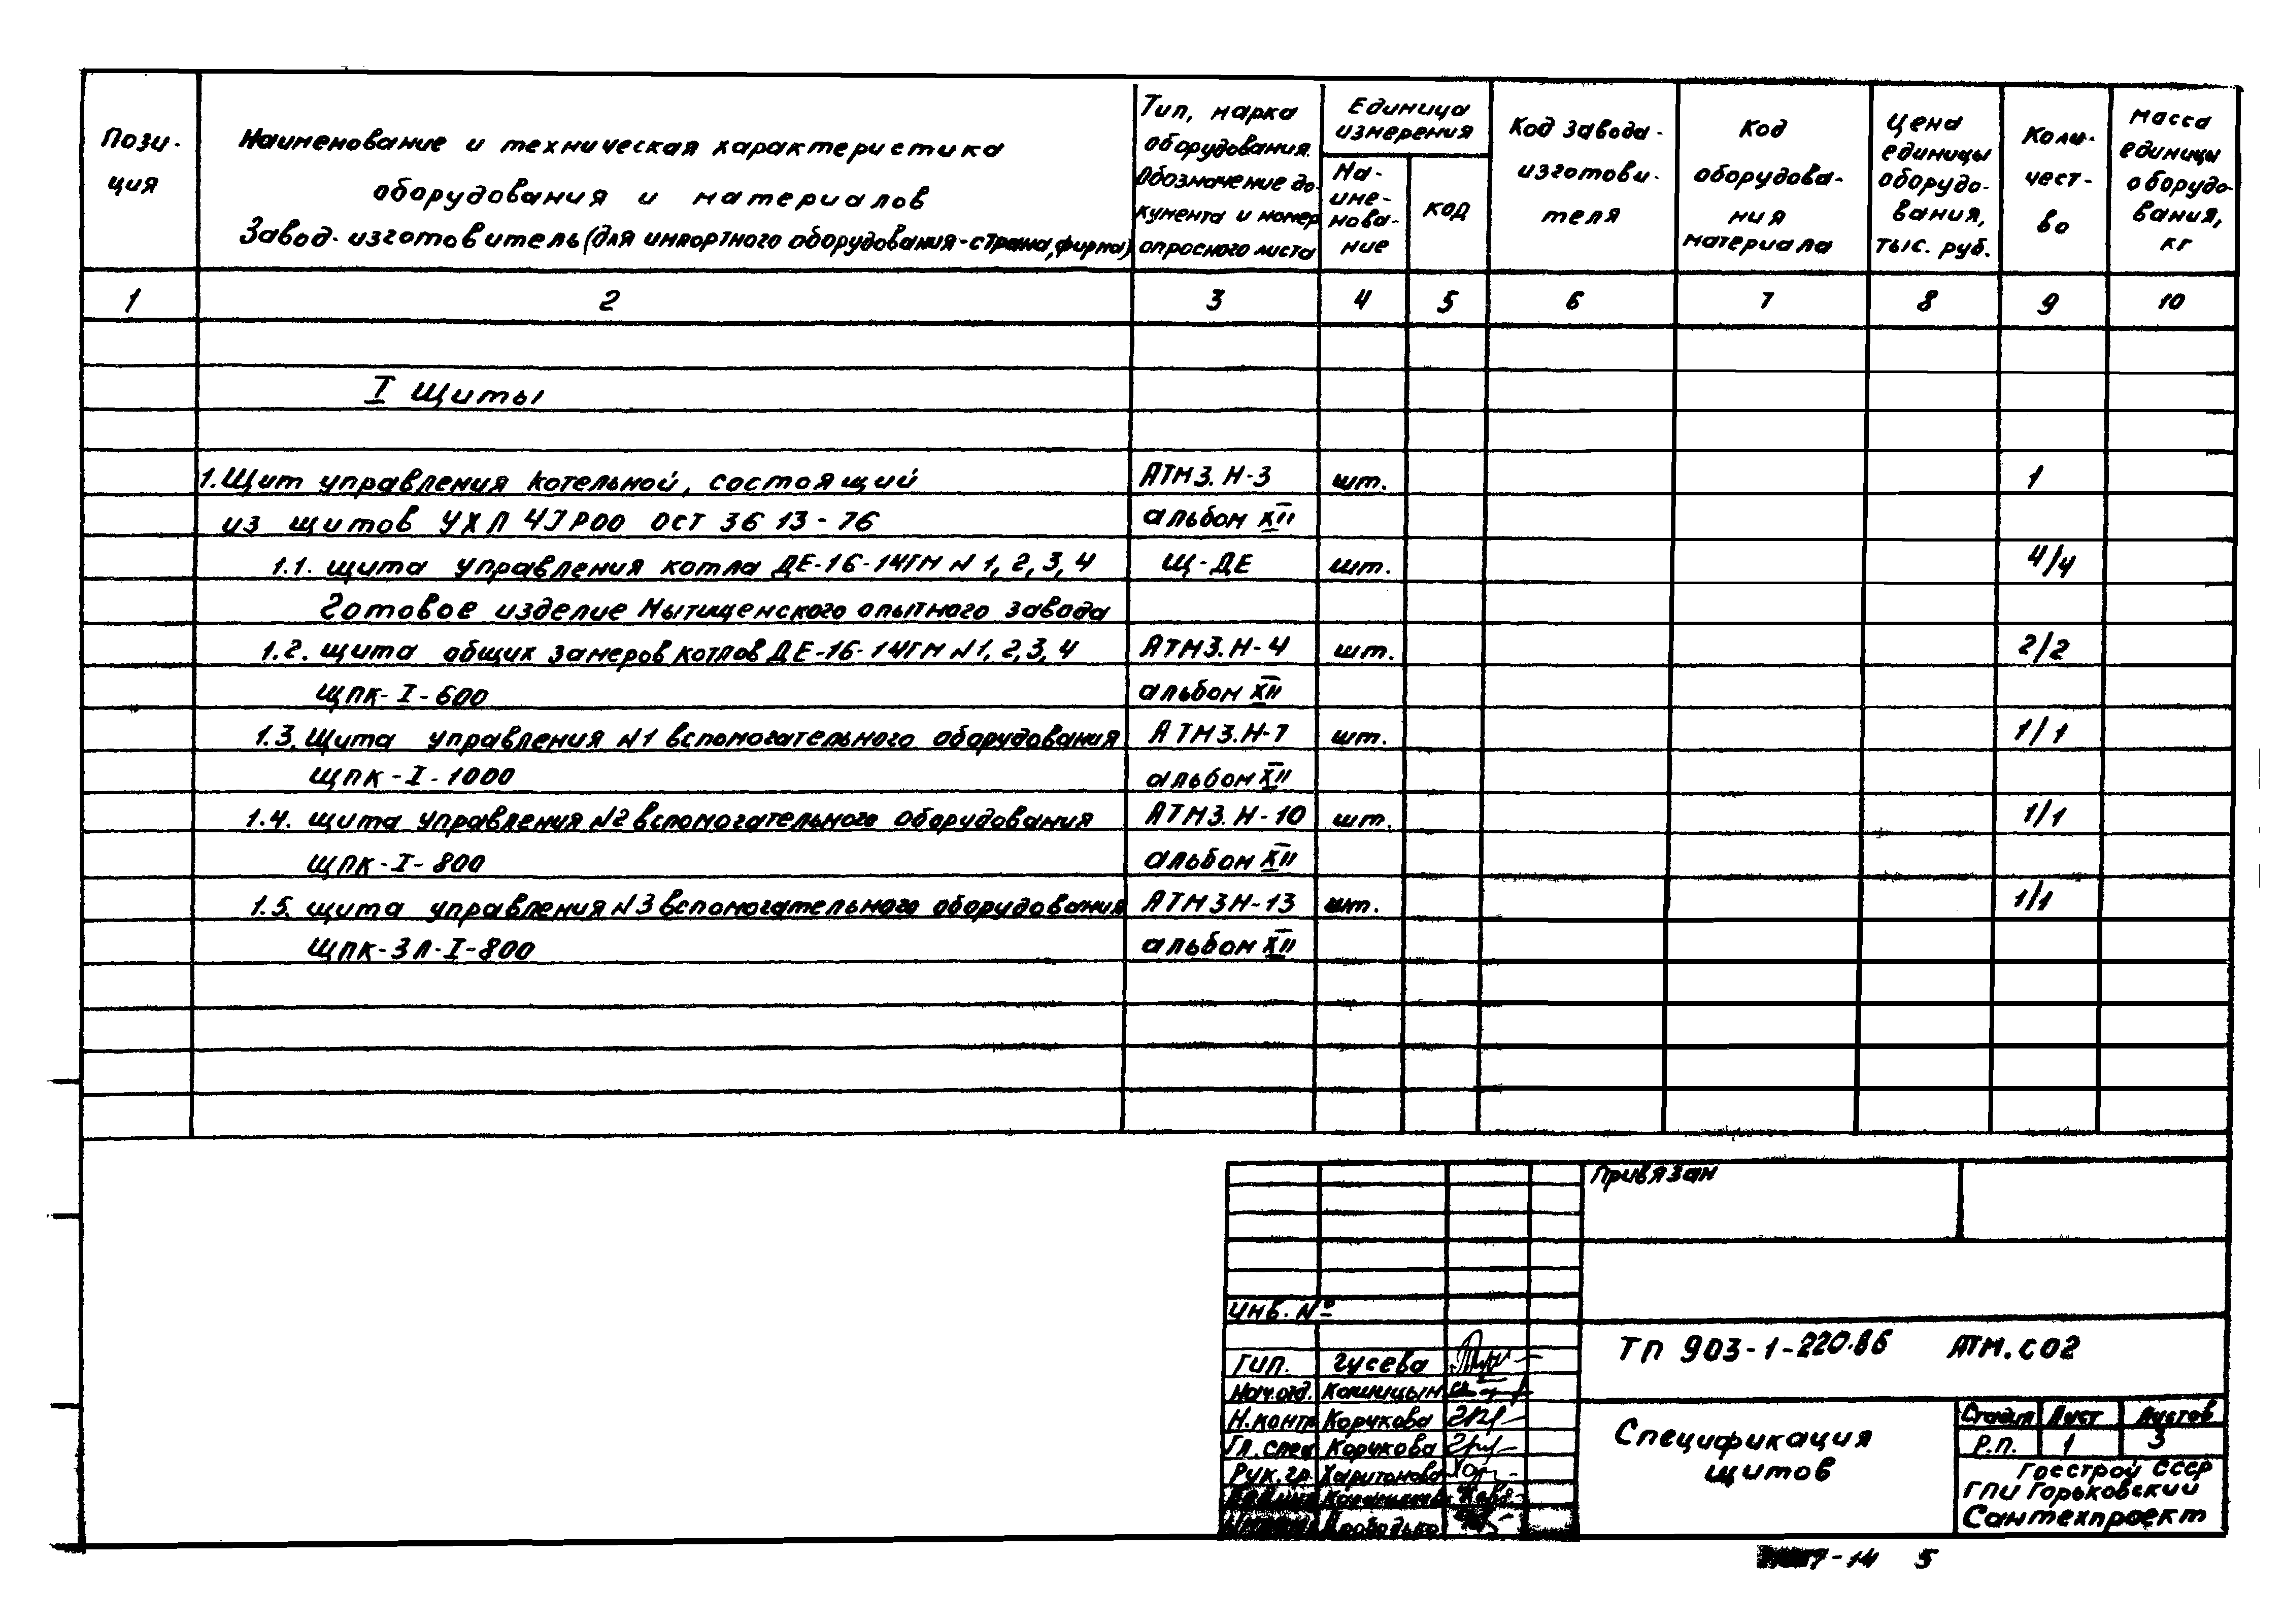 Пози-
ция
Наименование и техническая характеристика
оборудования и материалов
Завод-изготовитель (для импортного оборудования-страна, фирма)
Тип, марка
оборудования.
Обозначение до-
кумента и номер
опросного листа
Единица
измерения
На-
име-
нова-
ние
код
Код завода-
изготови-
теля
Код
оборудова-
ния
материала
Цена
единицы
оборудо-
вания,
тыс. руб.
Коли-
чест-
во
Масса
единицы
оборудо-
вания,
кг
1 2 3 4 5 6 7 8 9 10
I Щиты
1. Щит управления котельной, состоящий АТМ3.Н-3 шт. 1
из щитов УХЛ 4JP00 ОСТ 36 13-76 альбом XII
1.1. щита управления котла ДЕ-16-14ГМ N 1, 2, 3, 4 Щ-ДЕ шт. 4/4
Готовое изделие Мытищенского опытного завода
1.2. щита общих замеров котлов ДЕ-16-14ГМ N1, 2, 3, 4 АТМ3.Н-4 шт. 2/2
ЩПК-I-600 альбом XII
1.3. Щита управления N1 вспомогательного оборудования АТМ3.Н-7 шт. 1/1
ЩПК-I-1000 альбом XII
1.4. щита управления N2 вспомогательного оборудования АТМ3.Н-10 шт. 1/1
ЩПК-I-800 альбом XII
1.5. щита управления N3 вспомогательного оборудования АТМ3Н-13 шт. 1/1
ЩПК-ЗЛ-I-800 альбом XII
Привязан
Инв. №
ТП 903-1-220.86 АТМ.СО2
ГИП. Гусева
Нач.отд.
Н.контр Корчкова
Гл.спец Корчкова
Рук.гр. Харитонова
Спецификация
щитов
Стадия Лист Листов
Р.П. 1 3
Госстрой СССР
ГПИ Горьковский
Сантехпроект
7-14 5